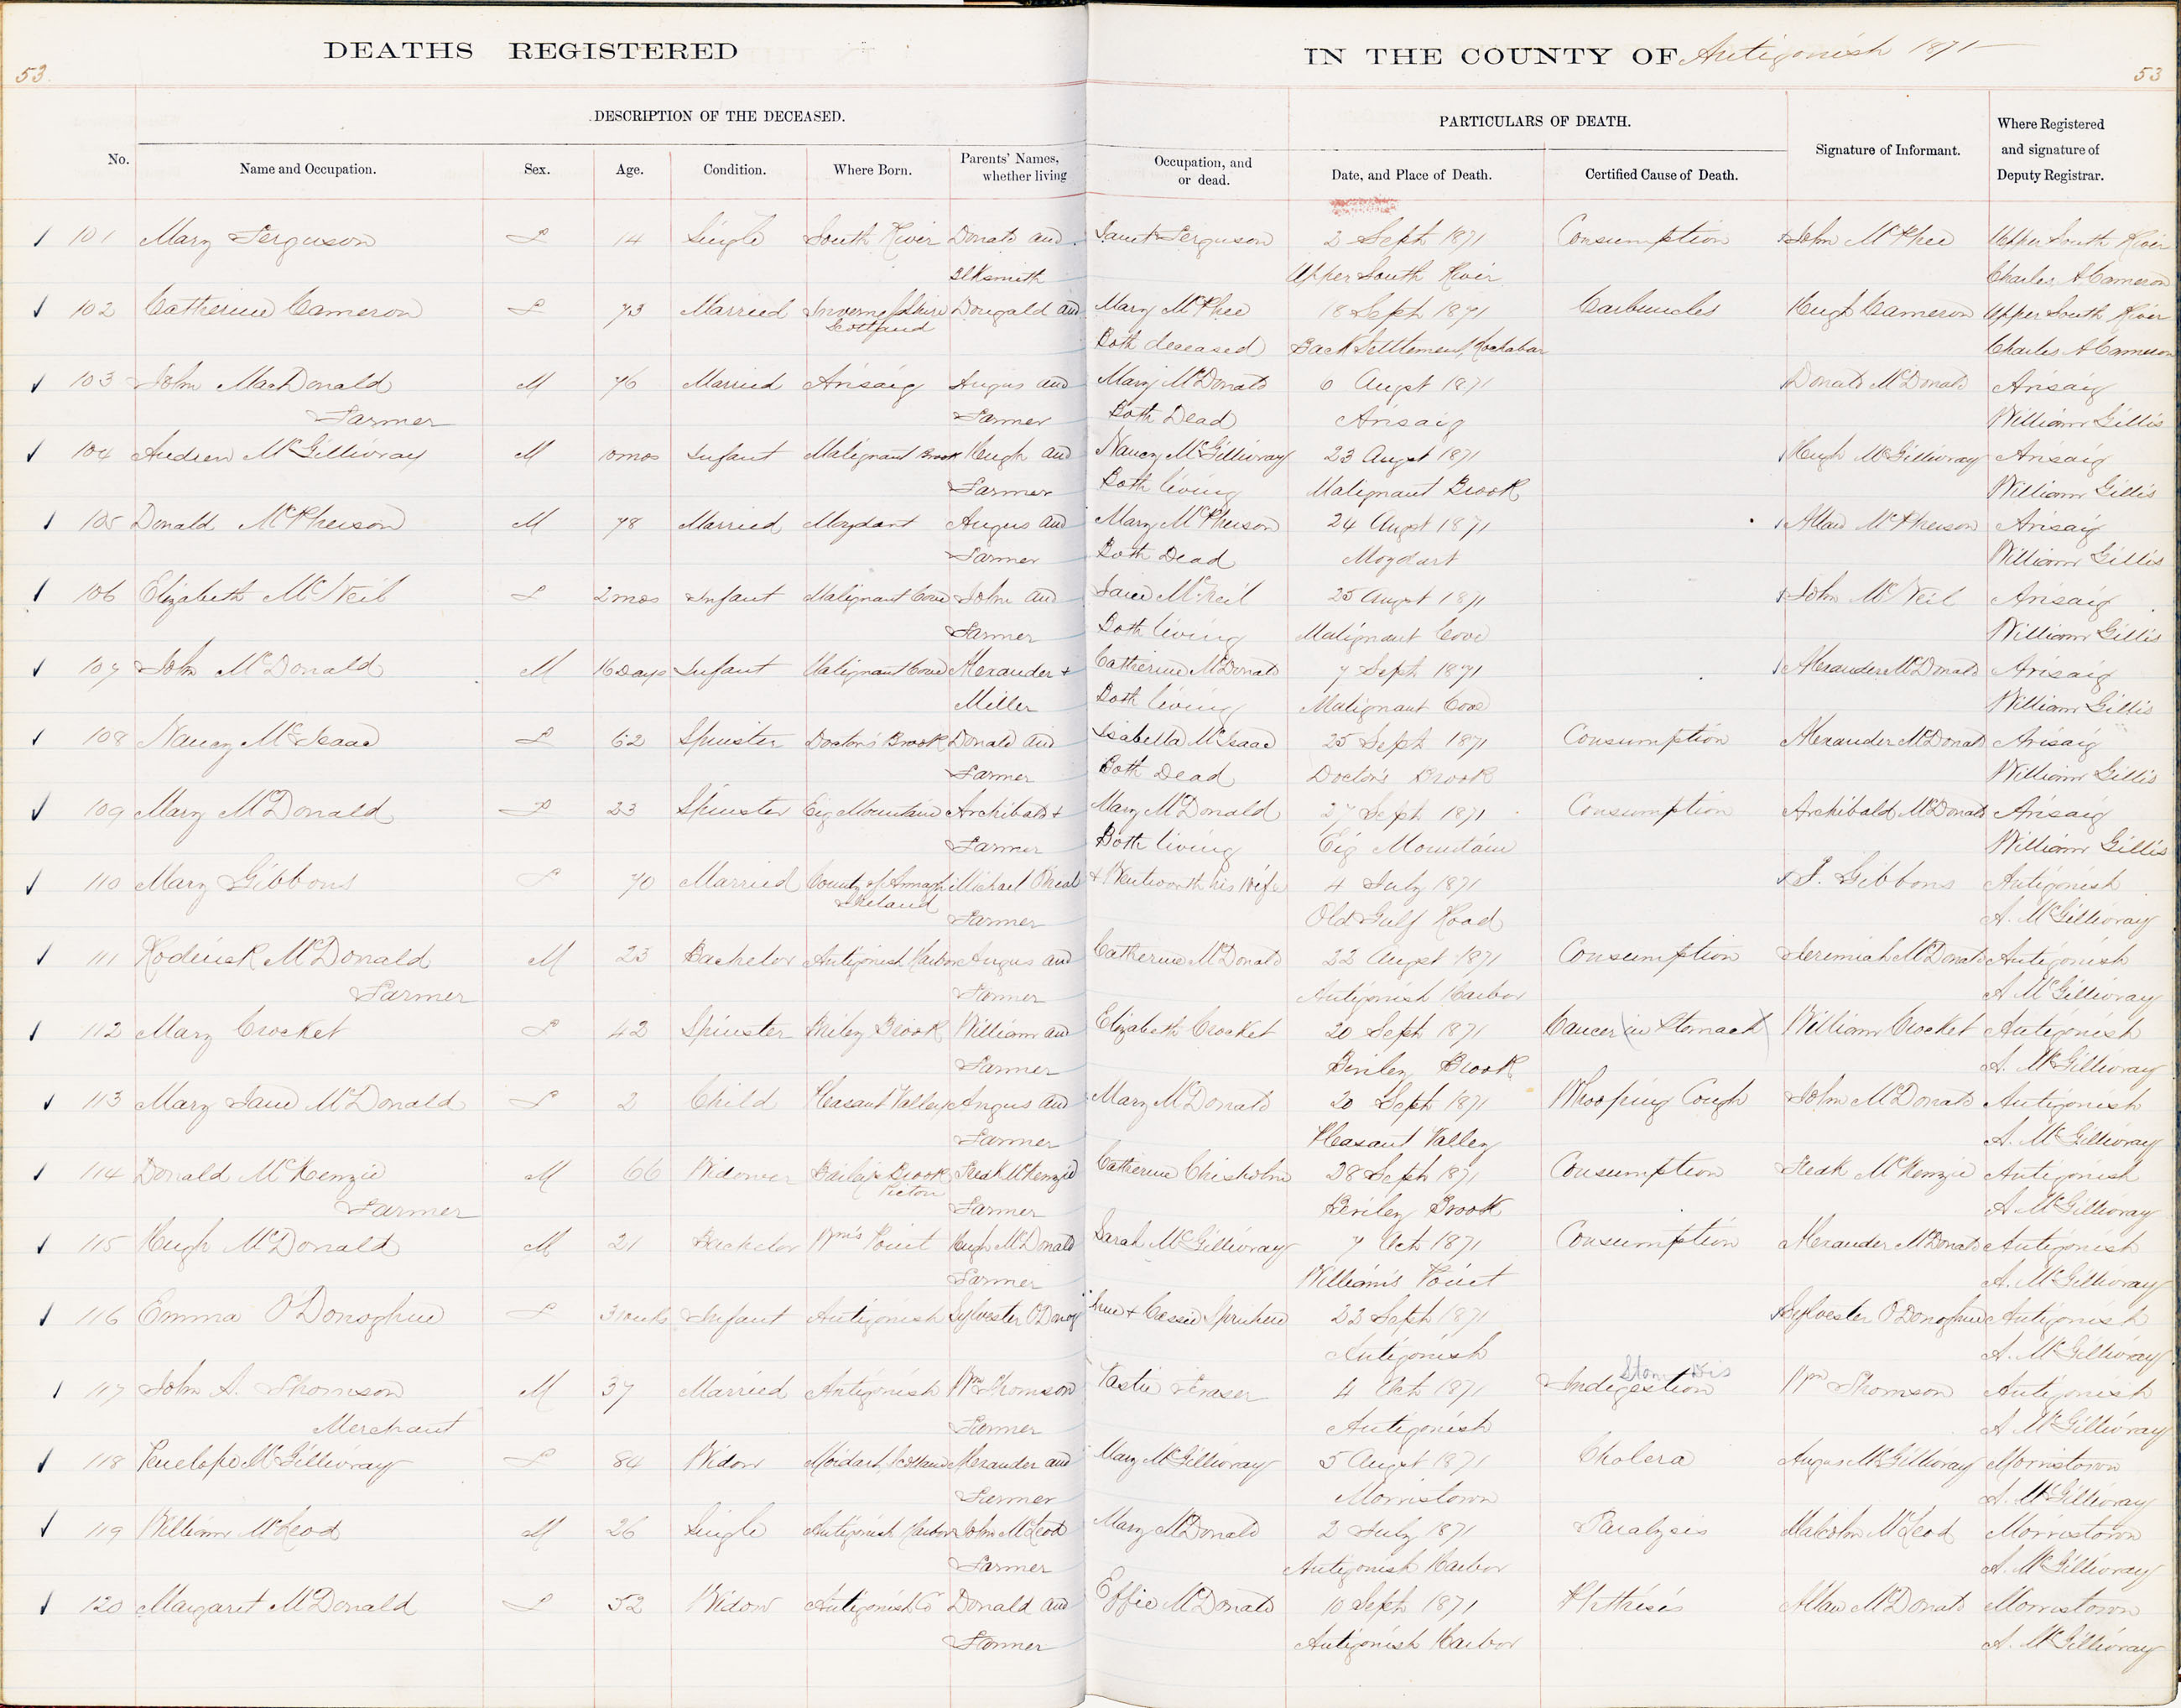 DEATHS REGISTERED IN THE COUNTY OF Antigonish 1871
53 53
DESCRIPTION OF THE DECEASED. PARTICULARS OF DEATH.
No. Name and Occupation. Sex. Age. Condition. Where Born. Parents' Names, whether living Occupation, and or dead. Date, and Place of Death. Certified Cause of Death. Signature of Informant. Where Registered and signature of Deputy Registrar.
101 Mary Ferguson F 14 Single South River Donald and Janet Ferguson 2 Sept 1871 Consumption John McPhee Upper South River
Blksmith Upper South River Charles A Cameron
102 Catherine Cameron F 73 Married Invernesshire Dougald and Mary McPhee 18 Sept 1871 Carbuncles Hugh Cameron Upper South River
Scotland Both deceased Back Settlement, Lochabar Charles A Cameron
103 John MacDonald M 76 Married Arisaig Angus and Mary McDonald 6 Augst 1871 Donald McDonald Arisaig
Farmer Farmer Both Dead Arisaig William Gillis
104 Andrew McGillivray M 10mos Infant Malignant Brook Hugh and Nancy McGillivray 23 Augst 1871 Hugh McGillivray Arisaig
Farmer Both living Malignant Brook William Gillis
105 Donald McPherson M 78 Married Moydart Angus and Mary McPherson 24 Augst 1871 Allan McPherson Arisaig
Farmer Both Dead Moydart William Gillis
106 Elizabeth McNeil F 2mos Infant Malignant Cove John and Jane McNeil 25 Augst 1871 John McNeil Arisaig
Farmer Both living Malignant Cove William Gillis
107 John McDonald M 16 Days Infant Malignant Cove Alexander + Catherine McDonald 7 Sept 1871 Alexander McDonald Arisaig
Miller Both living Malignant Cove William Gillis
108 Nancy McIsaac F 62 Spinster Doctor's Brook Donald and Isabella McIsaac 25 Sept 1871 Consumption Alexander McDonald Arisaig
Farmer Both Dead Doctor's Brook William Gillis
109 Mary McDonald F 23 Spinster Eig Mountain Archibald + Mary McDonald 27 Sept 1871 Consumption Archibald McDonald Arisaig
Farmer Both living Eig Mountain William Gillis
110 Mary Gibbons F 70 Married County of Armagh Michael + Wentworth his Wife 4 July 1871 J. Gibbons Antigonish
Ireland Farmer Old Gulf Road A. McGillivray
111 Roderick McDonald M 23 Bachelor Antigonish Harbor Angus and Catherine McDonald 22 Augst 1871 Consumption Jeremiah McDonald Antigonish
Farmer Farmer Antigonish Harbor A McGillivray
112 Mary Crocket F 42 Spinster Briley Brook William and Elizabeth Crocket 20 Sept 1871 Cancer (in Stomach) William Crocket Antigonish
Farmer Biriley Brook A. McGillivray
113 Mary Jane McDonald F 2 Child Pleasant Valley Angus and Mary McDonald 20 Sept 1871 Whooping Cough John McDonald Antigonish
Farmer Pleasant Valley A. McGillivray
114 Donald McKenzie M 66 Widower Bailey's Brook McKenzie Catherine Chisholm 28 Sept 1871 Consumption McKenzie Antigonish
Farmer Pictou Farmer Biriley Brook A. McGillivray
115 Hugh McDonald M 21 Bachelor Wm's Point Hugh McDonald Sarah McGillivray 7 Oct 1871 Consumption Alexander McDonald Antigonish
Farmer William's Point A. McGillivray
116 Emma O'Donoghue F 3 weeks Infant Antigonish Sylvester O'Donog hue + Cassie 22 Sept 1871 Sylvester O'Donoghue Antigonish
Antigonish A. McGillivray
117 John A. Thomson M 37 Married Antigonish Wm Thomson Fraser 4 Oct 1871 Indigestion Wm Thomson Antigonish
Merchant Farmer Antigonish A McGillivray
118 Penelope McGillivray F 84 Widow Moidart, Scotland Alexander and Mary McGillivray 5 Augst 1871 Cholera Angus McGillivray Morristown
Farmer Morristown A. McGillivray
119 William McLeod M 26 Single Antigonish Harbor John McLeod Mary McDonald 2 July 1871 Paralysis Malcolm McLeod Morristown
Farmer Antigonish Harbor A. McGillivray
120 Margaret McDonald F 52 Widow Antigonish Co Donald and Effie McDonald 10 Sept 1871 Phthisis Allan McDonald Morristown
Farmer Antigonish Harbor A. McGillivray